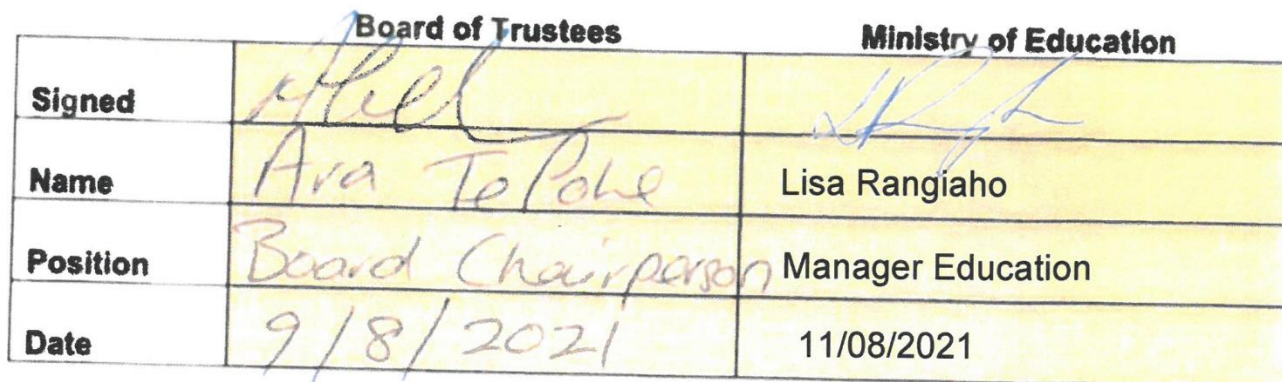 Board of Trustees Ministry of Education
Signed
Name Ara Te Pohe Lisa Rangiaho
Position Board Chairperson Manager Education
Date 9/8/2021 11/08/2021